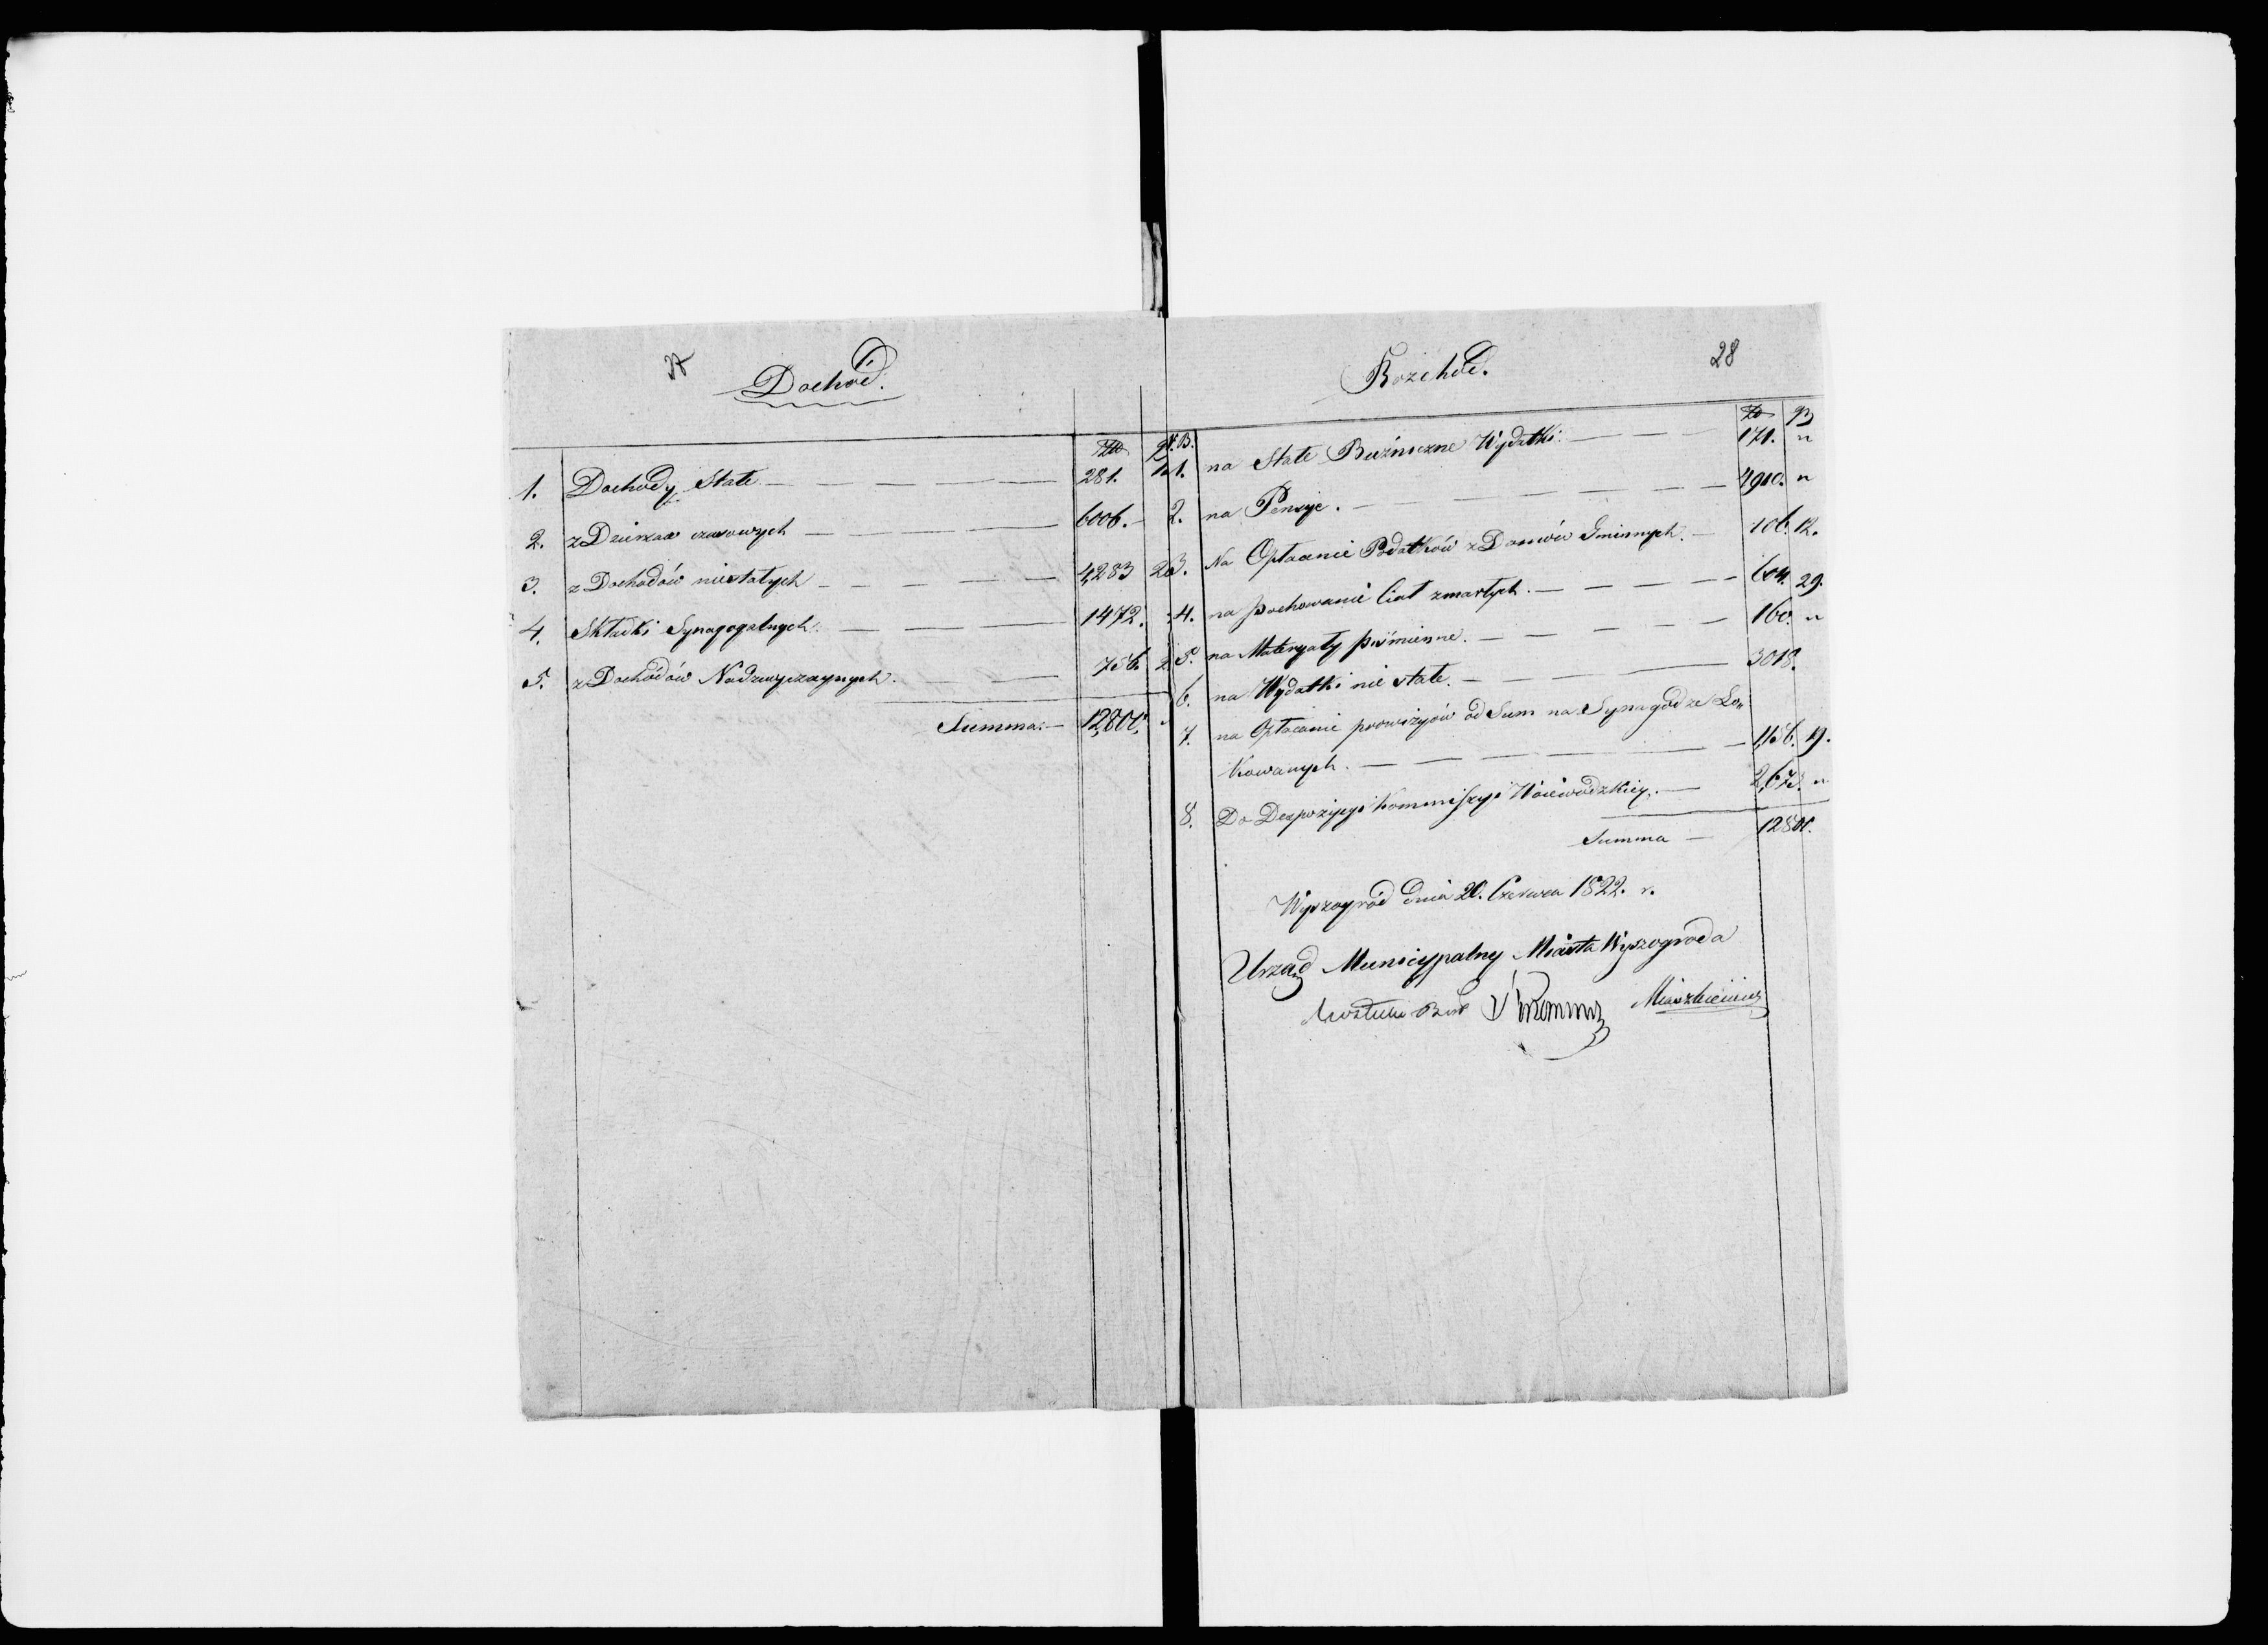 Dochód.
Złp gr
1. Dochody Stałe — 281. 1
2. z Dzierżaw czasowych — 6006. —
3. z Dochodów niestałych — 4,283 20
4. Składki Synagogalnych. — 1472.
5. z Dochodów Nadzwyczaynych. — 756. 2
Summa. — 12,800.
Rozchód. 28
N.B. Złp gr
1. na Stałe Bużniczne Wydatki. — 171. „
2. na Pensye. — 4910. „
3. Na Opłacenie Podatków z Domów Gminnych. — 106. 12.
4. na pochowanie Ciał zmarłych. — 604. 29.
5. na Materyały piśmienne. — 160. „
6. na Wydatki nie stałe. — 3018.
7. na Opłacenie prowizyów od Sum na Synagodze Lo„
kowanych. — 1,156. 19.
8. Do Depozycyi Kommissyi Woiewodzkiey. — 2,673. „
Summa — 12800.
Wyszogród dnia 20. Czerwca 1822. r.
Urząd Municypalny Miasta Wyszogroda